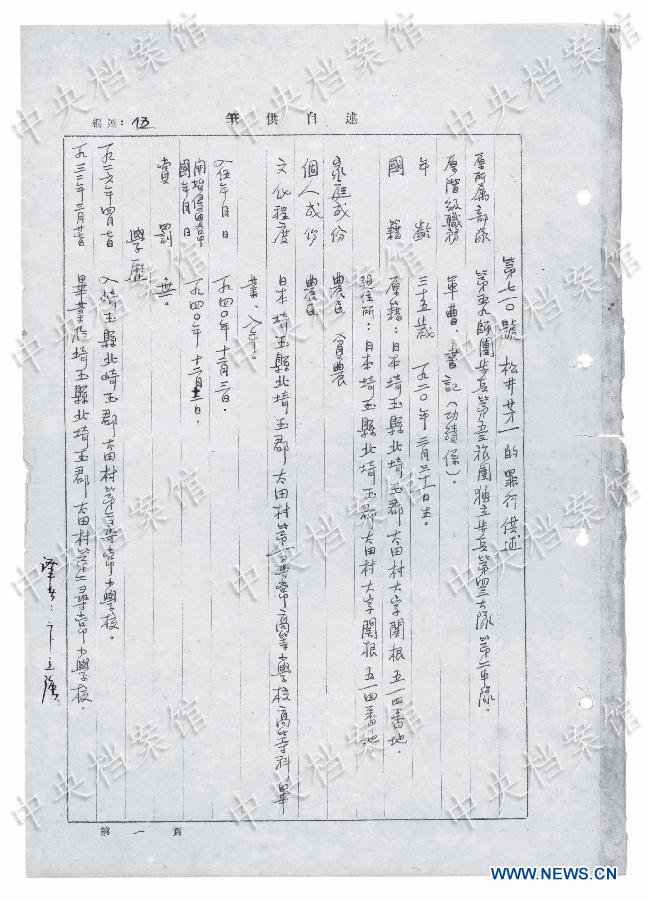 編號：13
筆供自述
第七一〇號 松井芽一的罪行供述
原所属部隊 第五九師團步兵第五三旅團独立步兵第四三大隊 第二中隊。
原階級職務 軍曹、書記（功績係）。
年齡 三十五歲 一九二〇年三月三十一日生。
國籍 原籍：日本埼玉縣北埼玉郡大田村大字関根五一四番地。
現住所：日本埼玉縣北埼玉郡大田村大字関根五一四番地
家庭成份 農民 貧農
個人成份 農民
文化程度 日本埼玉縣北埼玉郡大田村第二尋常高等小學校高等科畢
業、入学。
入伍年月日 一九四〇年十二月三日。
開始侵略中國年月日 一九四〇年十二月十二日。
賞罰 無。
學歷
一九二六年四月一日 入埼玉縣北埼玉郡大田村第二尋常小學校。
一九三二年三月廿七日 畢業於埼玉縣北埼玉郡大田村第二尋常小學校。
譯者：卞立強
第一頁
中央档案馆
新华网
WWW.NEWS.CN